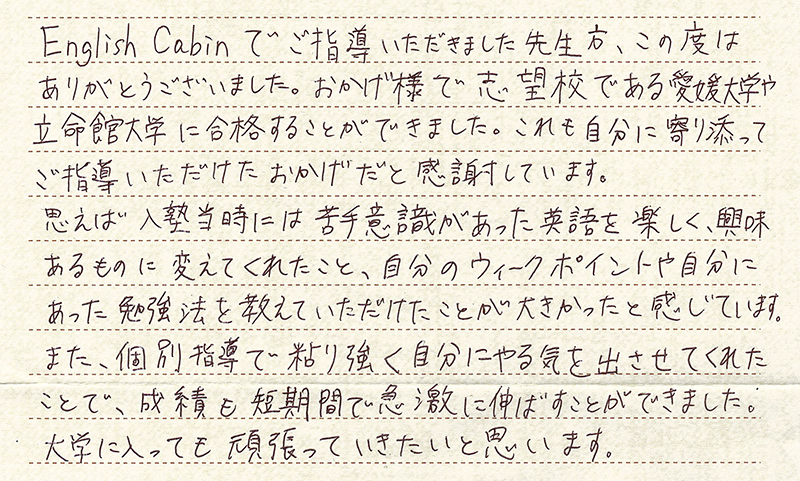 English Cabinでご指導いただきました先生方、この度は
ありがとうございました。おかげ様で志望校である愛媛大学や
立命館大学に合格することができました。これも自分に寄り添って
ご指導いただけたおかげだと感謝しています。
思えば入塾当時には苦手意識があった英語を楽しく、興味
あるものに変えてくれたこと、自分のウィークポイントや自分に
あった勉強法を教えていただけたことが大きかったと感じています。
また、個別指導で粘り強く自分にやる気を出させてくれた
ことで、成績も短期間で急激に伸ばすことができました。
大学に入っても頑張っていきたいと思います。